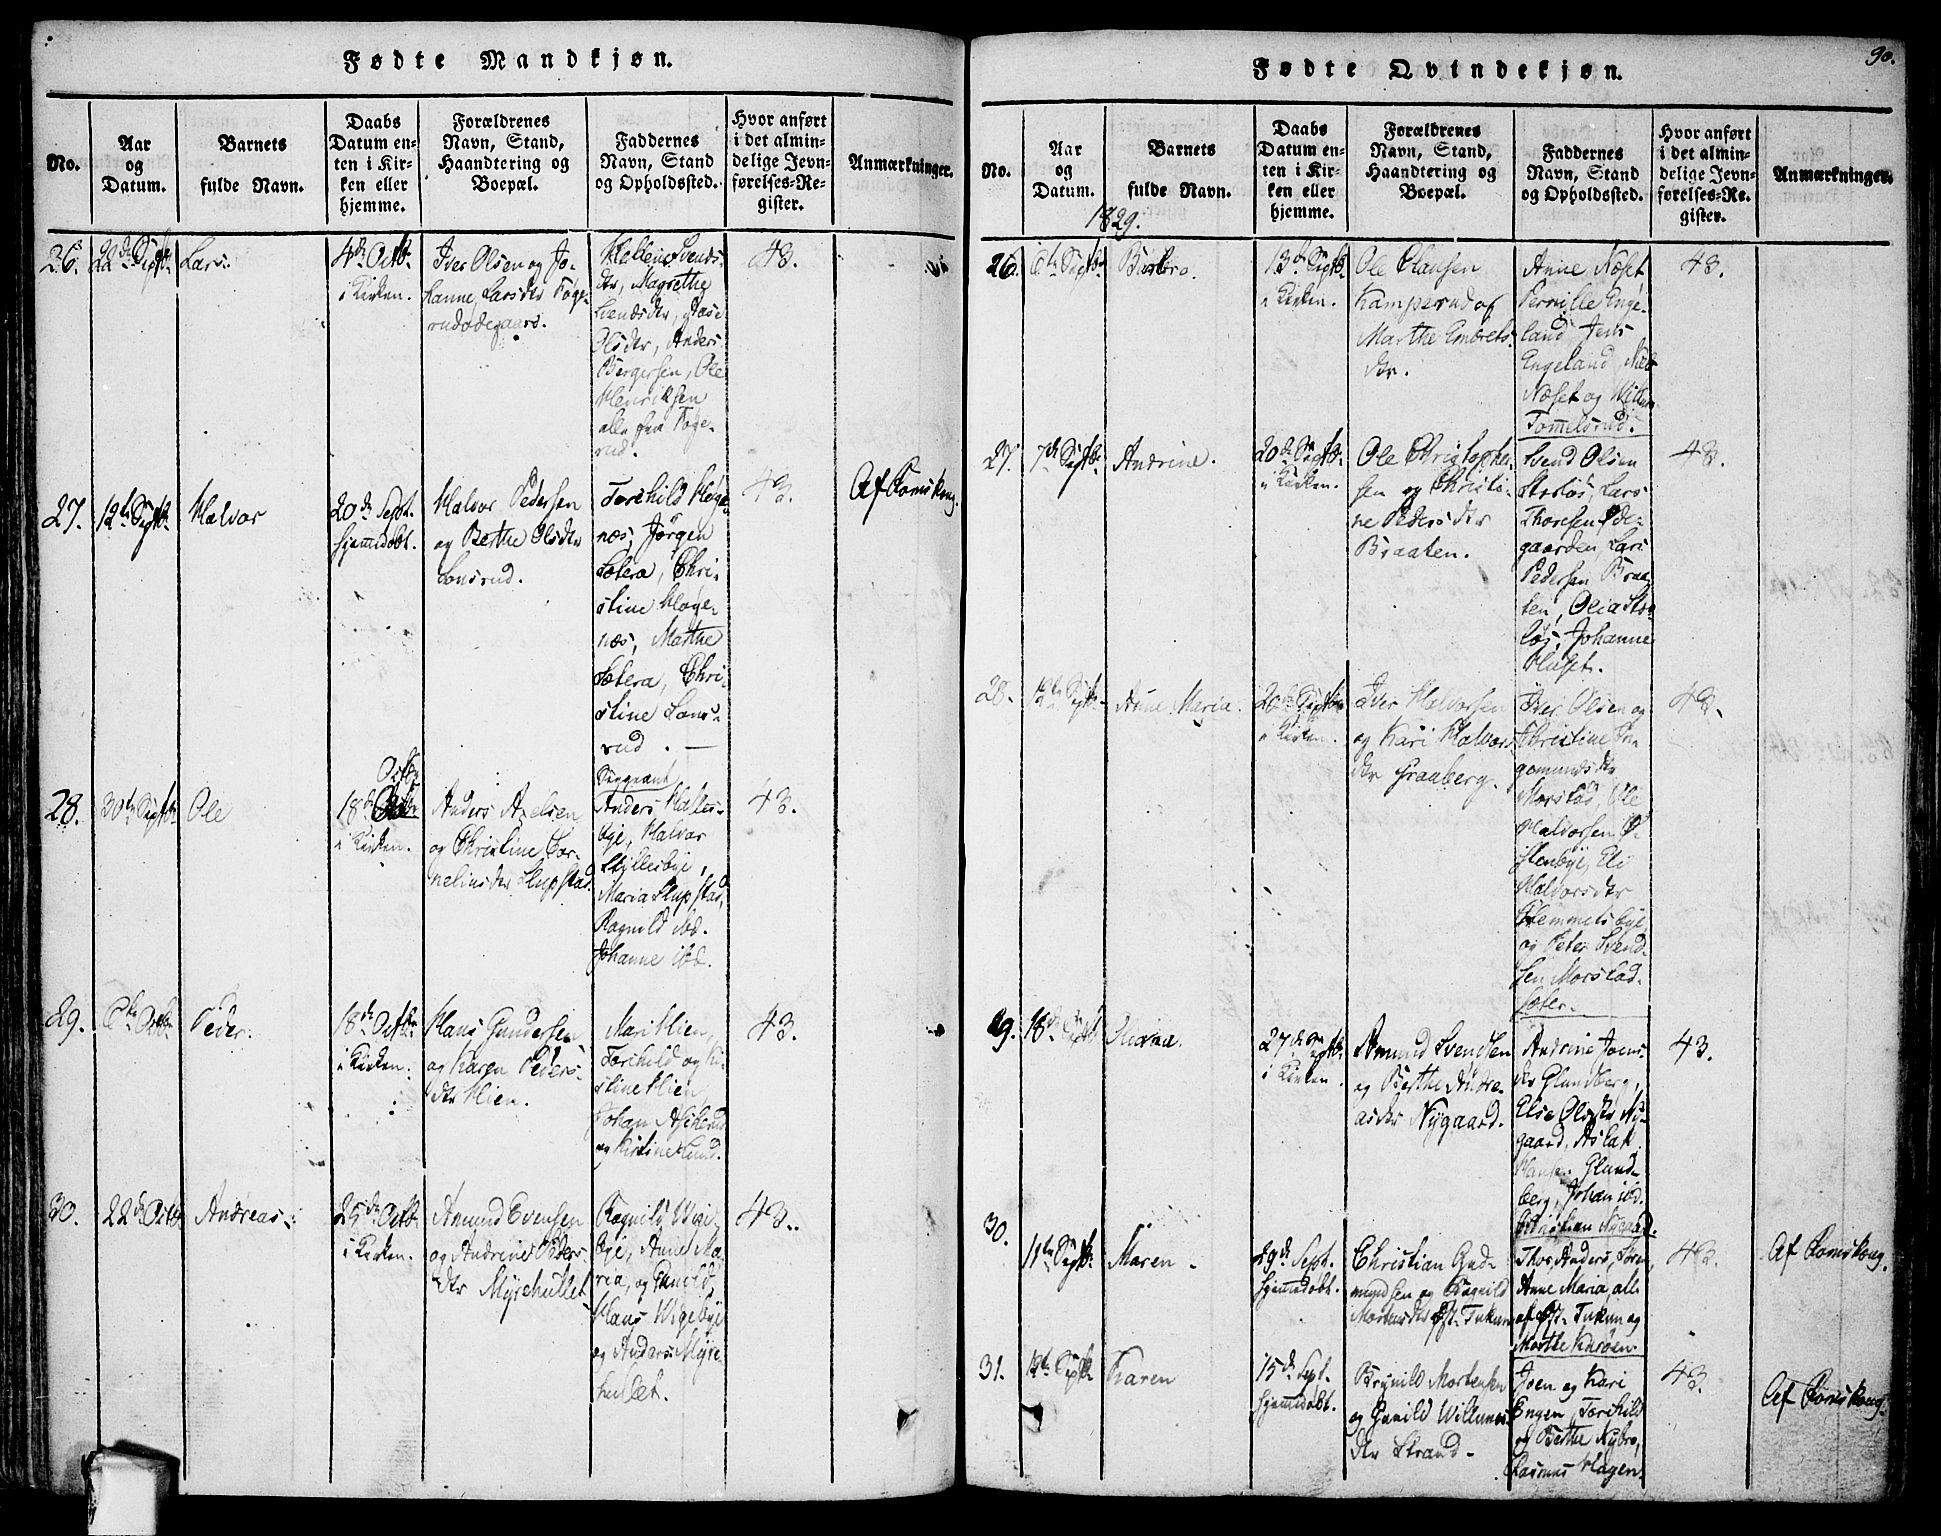 Fødte Mandkjøn.
No.
Aar
og
Datum.
Barnets
fulde Navn.
Daabs
Datum en-
ten i Kir-
ken eller
hjemme.
Forældrenes
Navn, Stand,
Haandtering og
Boepæl.
Faddernes
Navn, Stand
og Opholdssted.
Hvor anført
i det almin-
delige Jevn-
førelses-Re-
gister.
Anmærkninger.
26.
22de Septbr.
Lars.
4de Octbr.
i Kirken.
Iver Olsen og Jo-
hanne Larsdtr Foge-
rudødegaard.
Svends-
dtr, Magrethe
Svendsdtr,
Olsdtr, Anders
Bergersen, Ole
Henriksen
alle fra Foge-
rud.
43.
27.
12te Septbr.
Halvor
20de Sept.
hjemmedøbt.
Halvor Pedersen
og Berthe Olsdtr
Sonsrud.
Torchild Hoge-
næs, Jörgen
Sætera, Chri-
stine Hoge-
næs, Marthe
Sætera, Chri-
stine Sons-
rud. —
43.
Af Romskoug.
28.
30te Septbr.
Ole
18de Octbr.
i Kirken.
Anders Axelsen
og Christine Cor-
neliusdtr Slupstad
Sergeant
Anders Halles-
bye, Halvor
Hyllesbye,
Maria Slupstad,
Ragnild ibd.
Johanne ibd.
43.
29.
6te Octbr.
Peder.
18de Octbr.
i Kirken.
Hans Gundersen
og Karen Peders-
dtr Mien.
Mari Mien,
Torchild og Ki-
stine Mien,
Johan Askerud
og Kistine Lund.
43.
30.
22de Octbr.
Andreas.
25de Octbr.
i Kirken.
Amund Evensen
og Andrine Peders-
dtr Myrehullet
Ragnild Wige-
bye, Anne Ma-
ria, og Gunild,
Hans Wigebye
og Anders Myre-
hullet.
43.
90.
Fødte Qvindekjøn.
No.
Aar
og
Datum.
Barnets
fulde Navn.
Daabs
Datum en-
ten i Kir-
ken eller
hjemme.
Forældrenes
Navn, Stand,
Haandtering og
Boepæl.
Faddernes
Navn, Stand
og Opholdssted.
Hvor anført
i det almin-
delige Jevn-
førelses-Re-
gister.
Anmærkninger.
1829.
26.
6te Septbr.
Barbro.
13de Septbr.
i Kirken.
Ole Clausen
Kamperud og
Marthe Embrets-
dtr.
Anne Næset
Pernille Enge-
land Jens
Engeland,
Næset og
Tommelsrud.
43.
27.
7de Septbr.
Andrine.
20de Septbr.
i Kirken.
Ole Christopher-
sen og Christi-
ne Pedersdtr
Braaten.
Svend Olsen
Stislös, Lars
Thoresen Öde-
gaarden, Lars
Pedersen Braa-
ten, Olia
Johanne
Huset.
43.
28.
12te Septbr.
Anne Maria.
20de Septbr.
i Kirken.
Iver Halvorsen
og Kari Halvors-
dtr Graaberg.
Iver Olsen og
Christine In-
gemundsdtr
Morstad, Ole
Halvorsen
Eli
Halvorsdtr
Klemmetsbye
og Peter Svend-
sen Morstad-
sæter.
43.
29.
18de Septbr.
27de Septbr.
i Kirken.
Amund Svendsen
og Berthe Andre-
asdtr Nygaard.
Andrine Joens-
dtr Glundberg,
Else Olsdtr Ny-
gaard, Aslak
Hansen Glund-
berg, Johan ibd.
Christian Nygaard.
43.
30.
11te Septbr.
Maren -
29de Sept.
hjemmedøbt.
Christian Gud-
mundsen og Ragnild
Mortensdtr Øst-Tukun
Thor, Anders, Søren,
Anne Maria, alle
af Øst-Tukun og
Marthe Kurøen.
43.
Af Romskoug.
31.
12te Septbr.
Karen
15de Sept.
hjemmedøbt.
Brynild Mortensen
og Gunild Willums-
dtr Strand -
Joen og Kari
Engen, Torchild
og Berthe Nybro,
Rasmus Hagen.
43.
Af Romskoug.